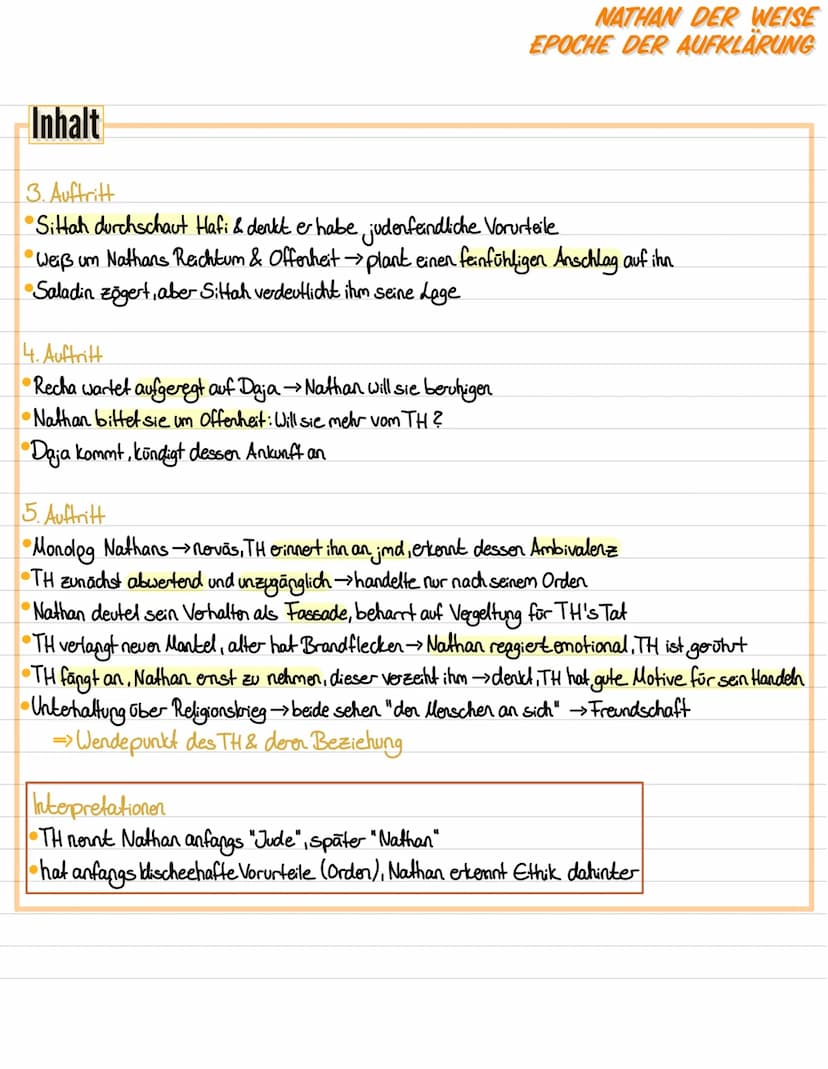 NATHAN DER WEISE
EPOCHE DER AUFKLÄRUNG
Inhalt
3. Auftritt
• Sittah durchschaut Hafi & denkt er habe judenfeindliche Vorurteile
• Weiß um Nathans Reichtum & Offenheit → plant einen feinfühligen Anschlag auf ihn
• Saladin zögert, aber Sittah verdeutlicht ihm seine Lage
4. Auftritt
• Recha wartet aufgeregt auf Daja → Nathan will sie beruhigen
• Nathan bittet sie um Offenheit: Will sie mehr vom TH?
• Daja kommt, kündigt dessen Ankunft an
5. Auftritt
• Monolog Nathans → nervös, TH erinnert ihn an jmd, erkennt dessen Ambivalenz
• TH zunächst abwertend und unzugänglich → handelte nur nach seinem Orden
• Nathan deutet sein Verhalten als Fassade, beharrt auf Vergeltung für TH's Tat
• TH verlangt neuen Mantel, alter hat Brandflecken → Nathan reagiert emotional, TH ist gerührt
• TH fängt an, Nathan ernst zu nehmen, dieser verzeiht ihm → denkt, TH hat gute Motive für sein Handeln
• Unterhaltung über Religionskrieg → beide sehen "den Menschen an sich" → Freundschaft
⇒ Wendepunkt des TH & deren Beziehung
Interpretationen
• TH nennt Nathan anfangs "Jude", später "Nathan"
• hat anfangs klischeehafte Vorurteile (Orden), Nathan erkennt Ethik dahinter